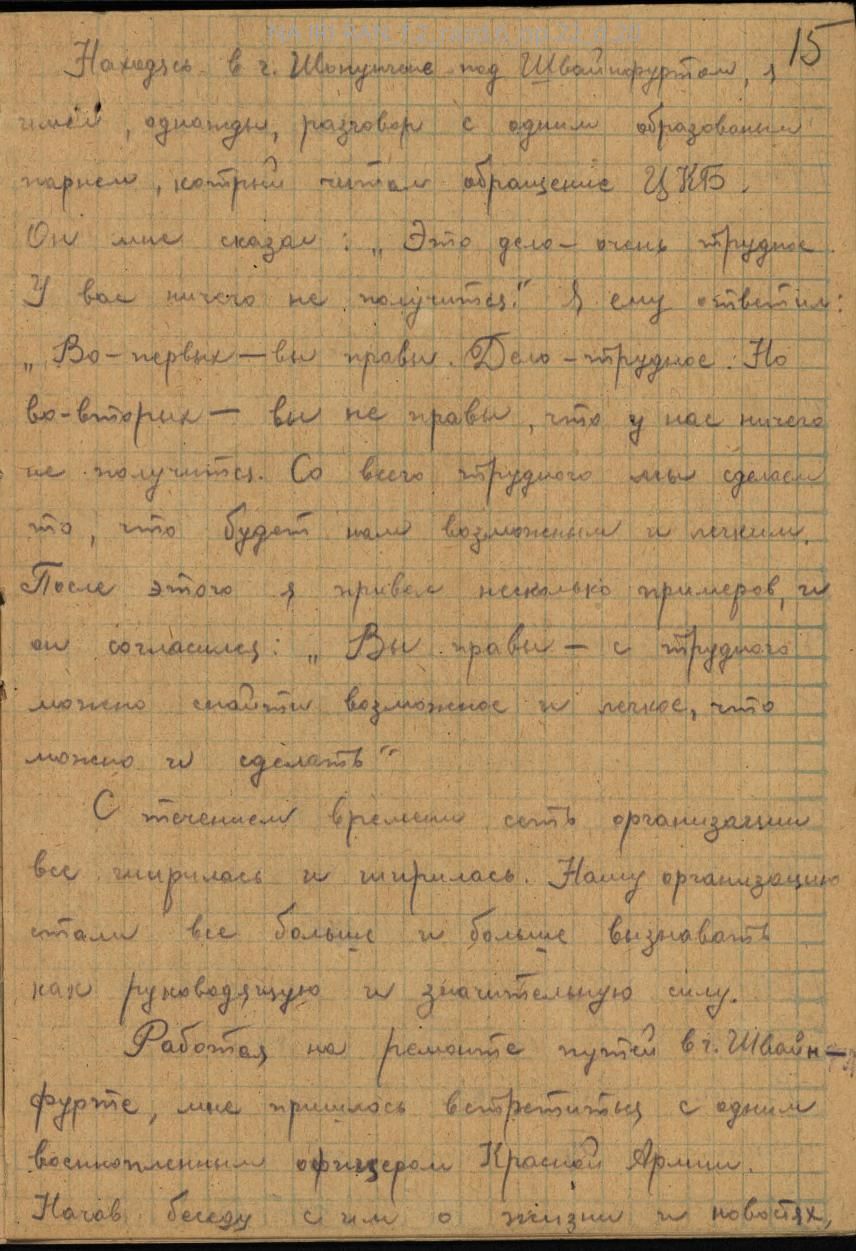 15
Находясь в г. Шонунгене под Швайнфуртом, я
имел, однажды, разговор с одним образованым
парнем, котрый читал обращение ЦКБ.
Он мне сказал: „Это дело – очень трудное.
У вас ничего не получится." Я ему ответил:
„Во-первых — вы правы. Дело – трудное. Но
во-вторых — вы не правы, что у нас ничего
не получится. Со всего трудного мы сделаем
то, что будет нам возможным и легким.
После этого я привел несколько примеров, и
он согласился: „Вы правы — с трудного
можно найти возможное и легкое, что
можно и сделать"
С течением времени сеть организации
все ширилась и ширилась. Нашу организацию
стали все больше и больше вызнавать
как руководящую и значительную силу.
Работая на ремонте путей в г. Швайн-
фурте, мне пришлось встретиться с одним
военнопленным офицером Красной Армии.
Начав беседу с им о жизни и новостях,